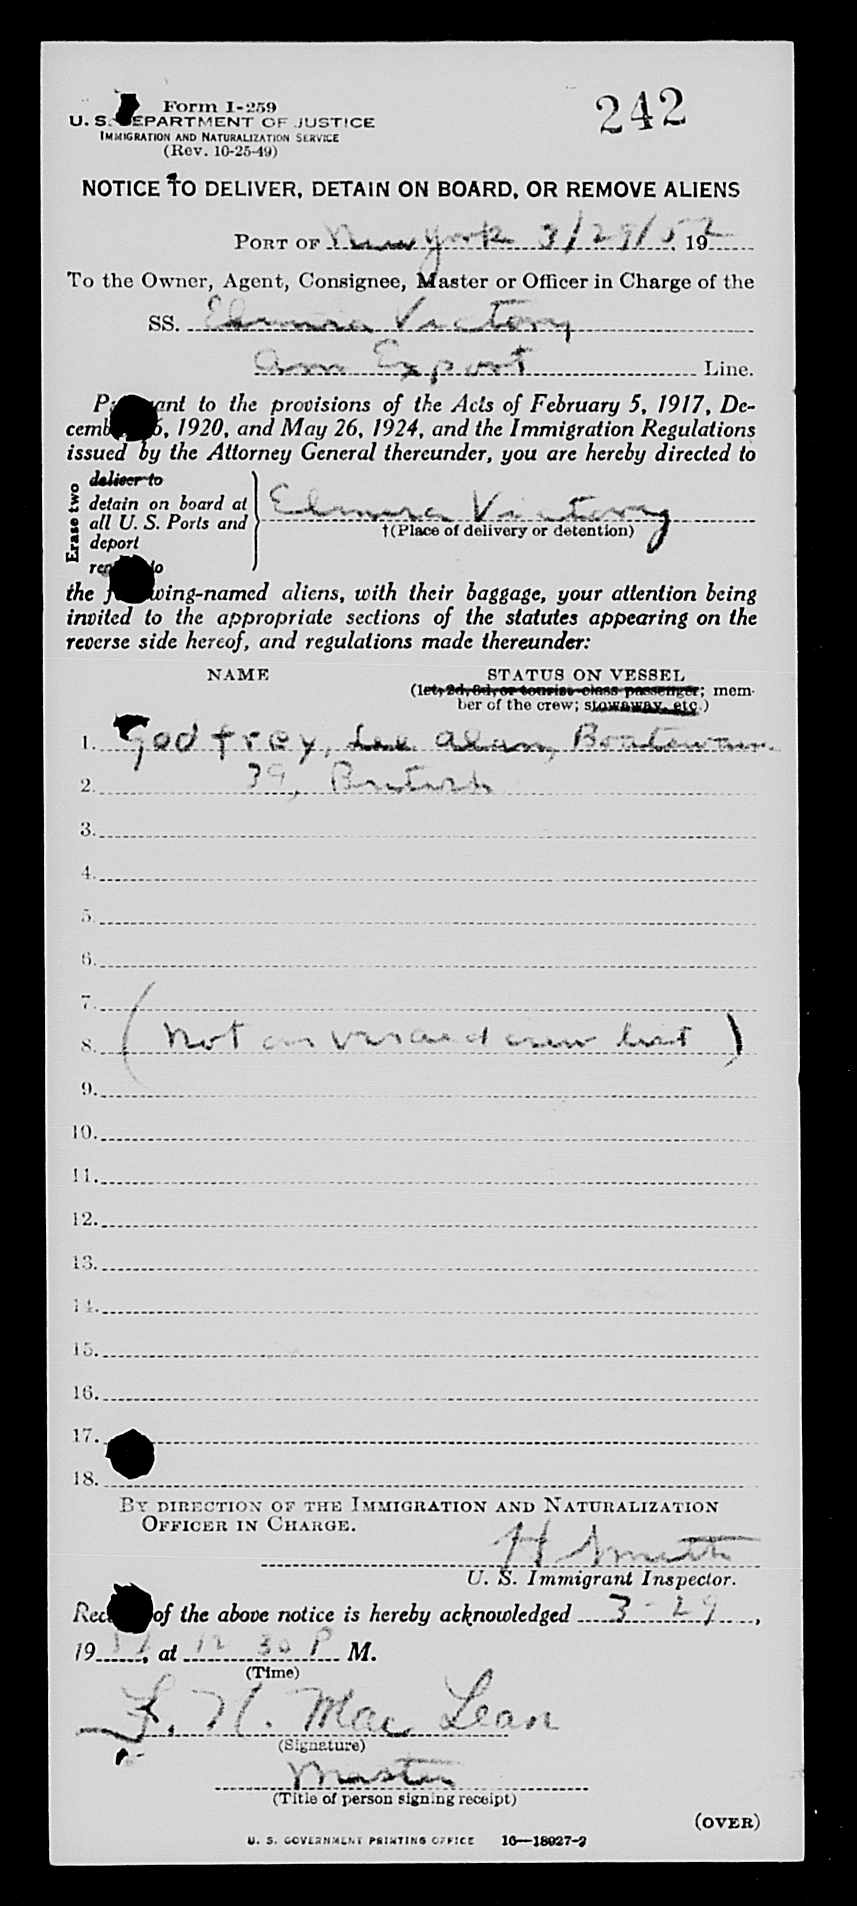 242
Form I-259
U. S. DEPARTMENT OF JUSTICE
IMMIGRATION AND NATURALIZATION SERVICE
(Rev. 10-25-49)
NOTICE TO DELIVER, DETAIN ON BOARD, OR REMOVE ALIENS
PORT OF New York 3/29/52, 19
To the Owner, Agent, Consignee, Master or Officer in Charge of the
SS. Elmira Victory
Am Export Line.
Pursuant to the provisions of the Acts of February 5, 1917, De-
cember 26, 1920, and May 26, 1924, and the Immigration Regulations
issued by the Attorney General thereunder, you are hereby directed to
Erase two
deliver to
detain on board at
all U. S. Ports and
deport
remove to
Elmira Victory
†(Place of delivery or detention)
the following-named aliens, with their baggage, your attention being
invited to the appropriate sections of the statutes appearing on the
reverse side hereof, and regulations made thereunder:
NAME STATUS ON VESSEL
(1st, 2d, 3d, or tourist-class passenger; mem-
ber of the crew; stowaway, etc.)
1. Godfrey, Lee Alan, Boatswain
2. 39, British
3.
4.
5.
6.
7.
8. (Not on visaed crew list)
9.
10.
11.
12.
13.
14.
15.
16.
17.
18.
BY DIRECTION OF THE IMMIGRATION AND NATURALIZATION
OFFICER IN CHARGE.
H Smith
U. S. Immigrant Inspector.
Receipt of the above notice is hereby acknowledged 3-29,
19, at 12 30 P M.
(Time)
F. N. Mac Lean
(Signature)
Master
(Title of person signing receipt)
(OVER)
U. S. GOVERNMENT PRINTING OFFICE 16—18027-2